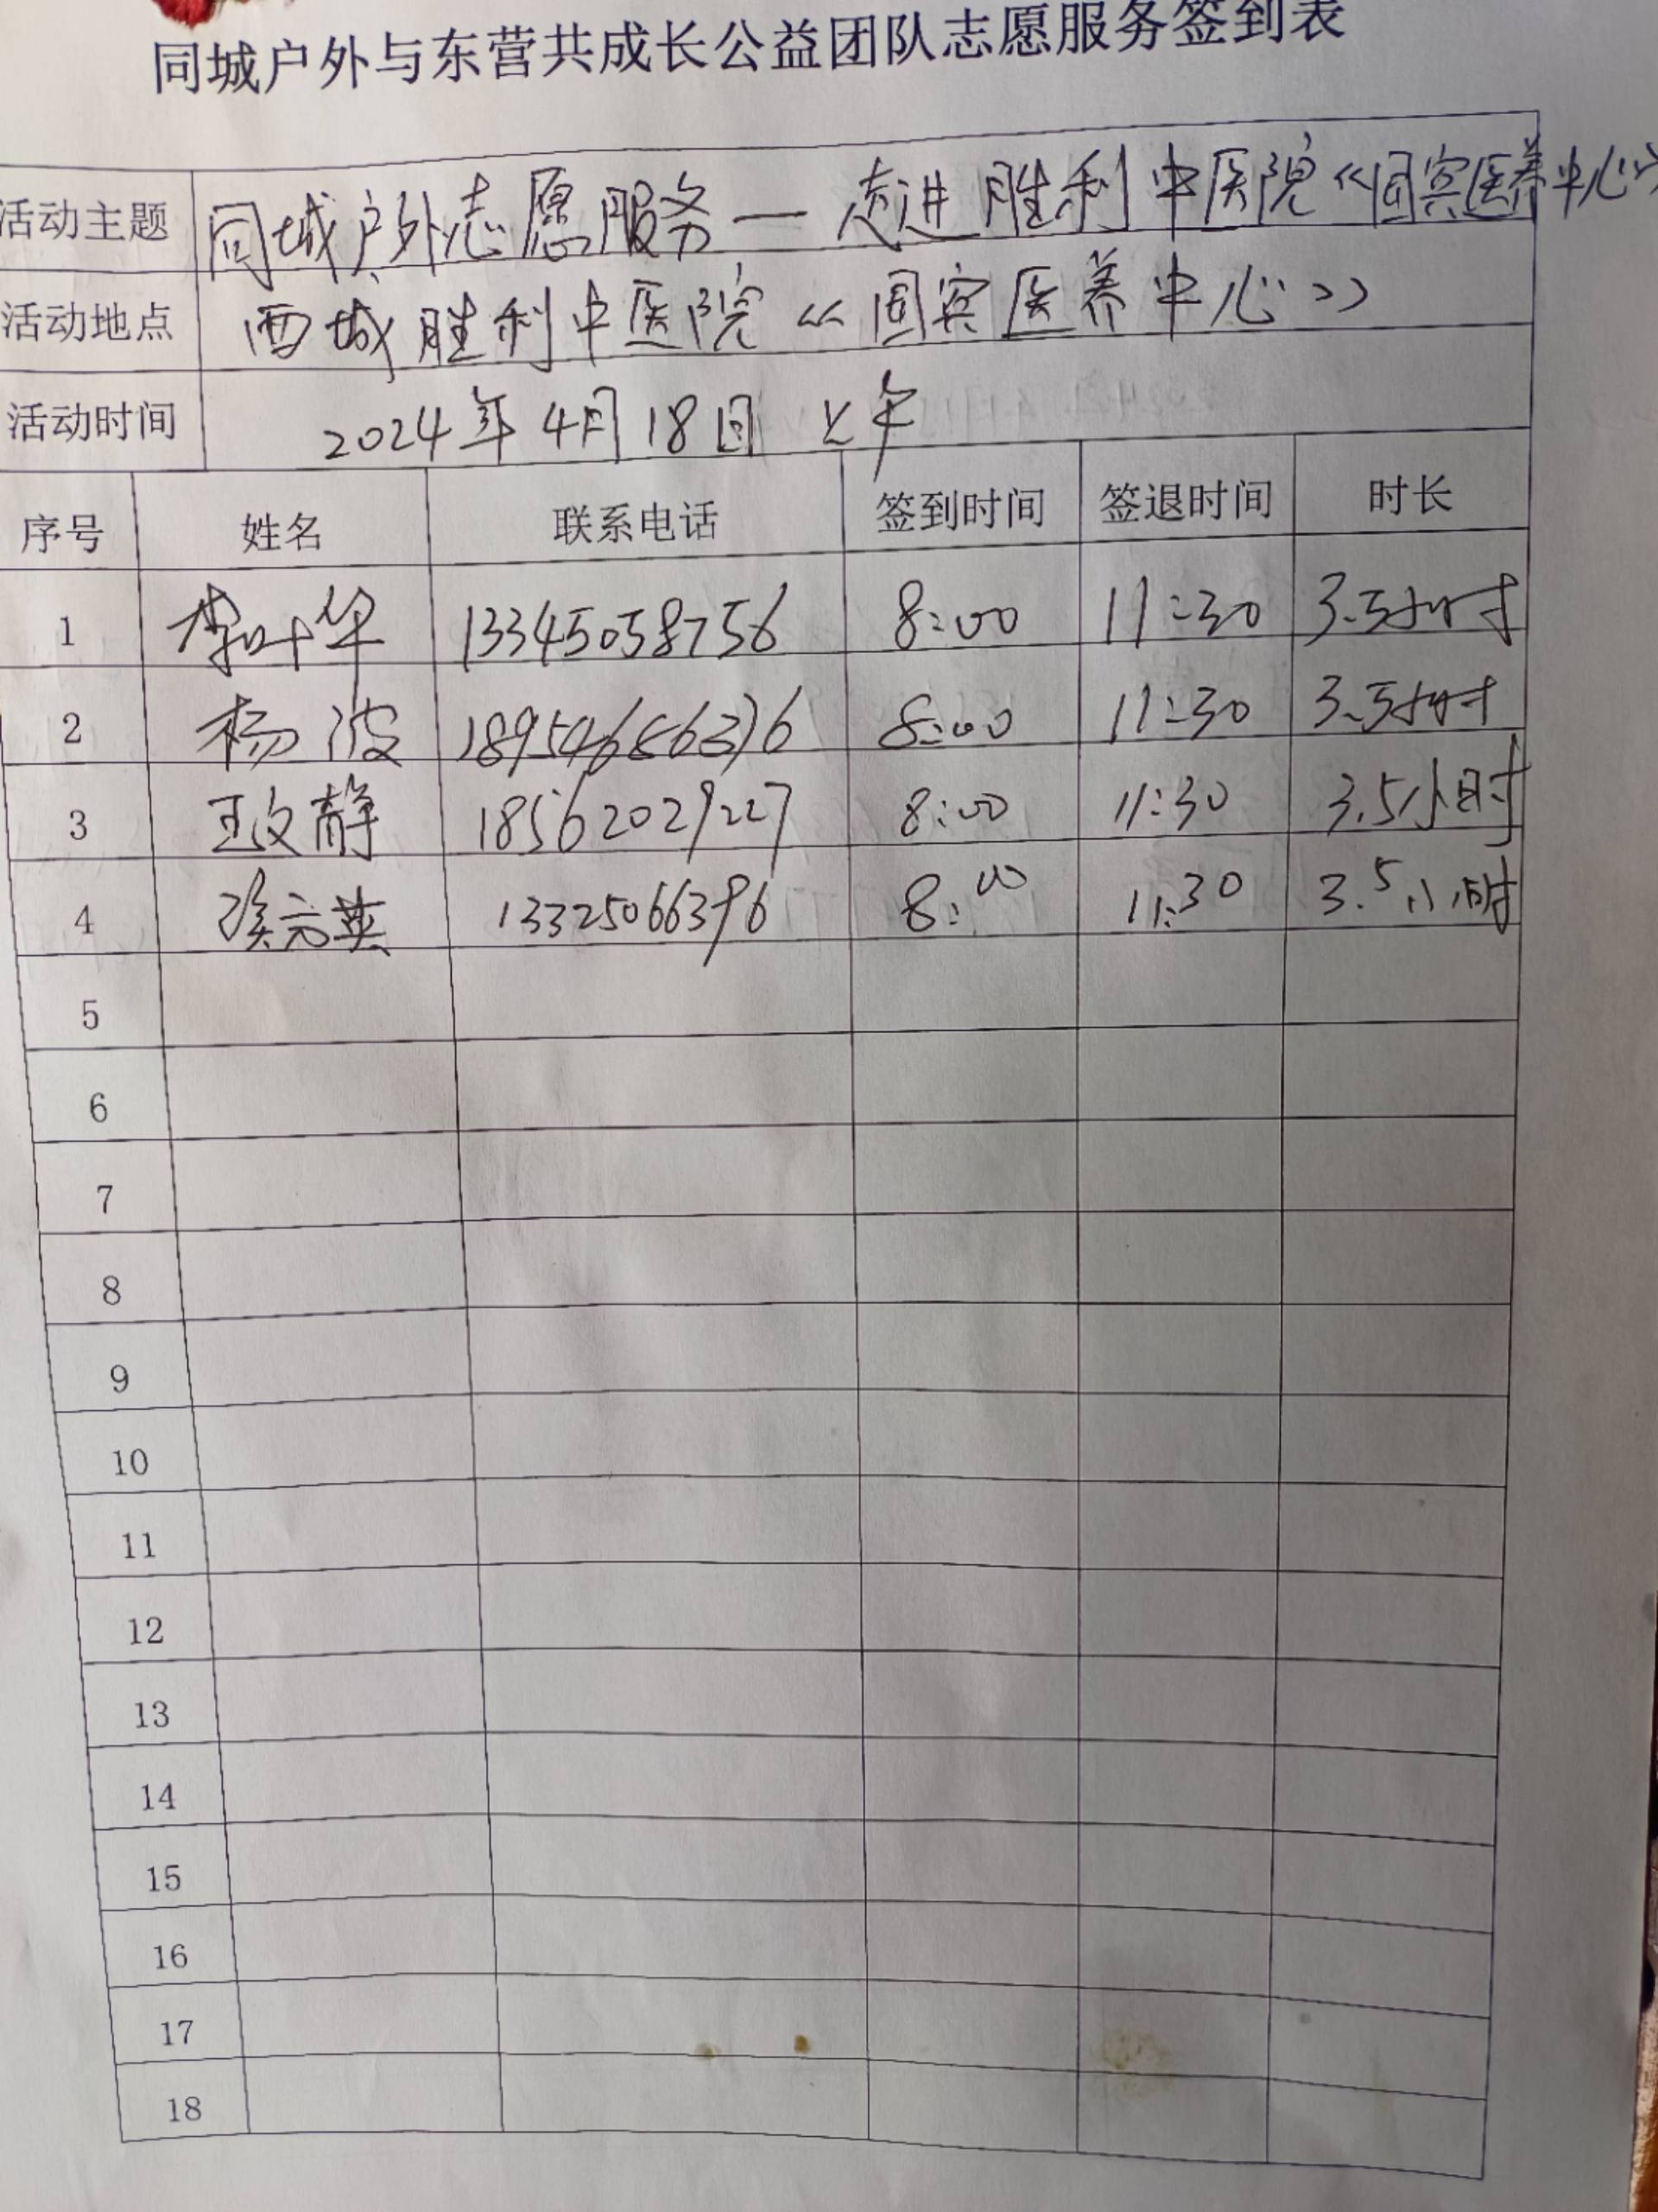 同城户外与东营共成长公益团队志愿服务签到表
活动主题 同城户外志愿服务—走进胜利中医院《国宾医养中心》
活动地点 西城胜利中医院《国宾医养中心》
活动时间 2024年4月18日 上午
序号 姓名 联系电话 签到时间 签退时间 时长
1 李叶华 13345058756 8:00 11:30 3.5小时
2 杨波 8:00 11:30 3.5小时
3 王文静 18562029227 8:00 11:30 3.5小时
4 13325066396 8:00 11:30 3.5小时
5
6
7
8
9
10
11
12
13
14
15
16
17
18